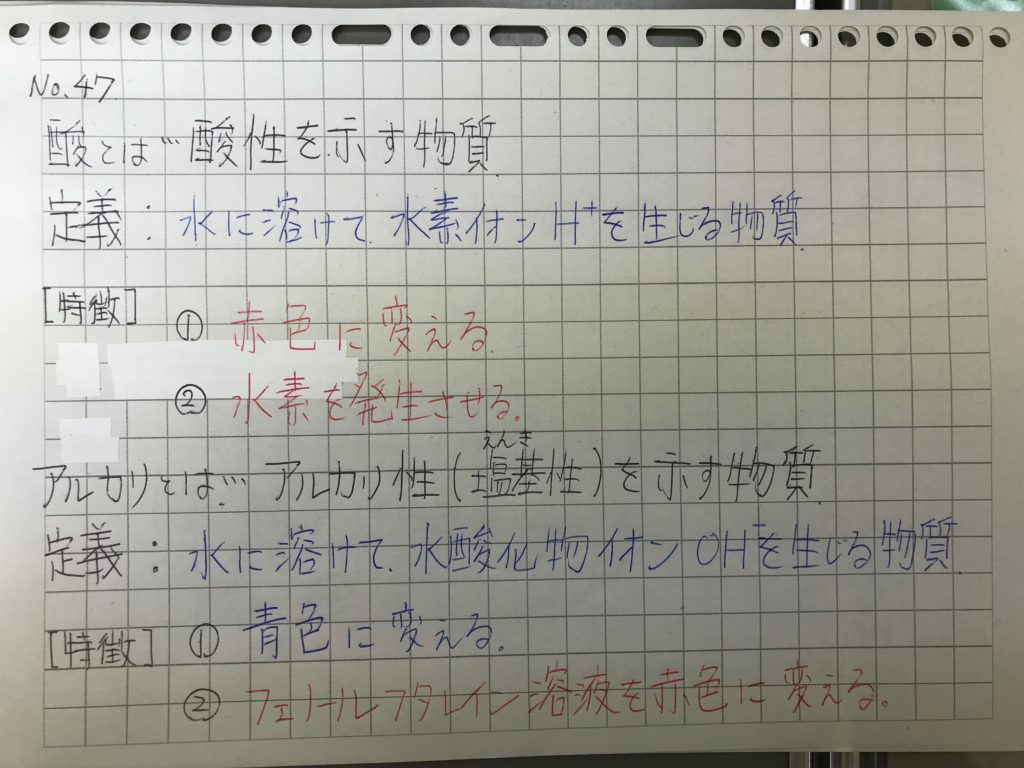 No.47
酸とは…酸性を示す物質
定義：水に溶けて水素イオンH⁺を生じる物質
[特徴] ① 赤色に変える。
② 水素を発生させる。
えんき
アルカリとは…アルカリ性(塩基性)を示す物質
定義：水に溶けて水酸化物イオンOH⁻を生じる物質
[特徴] ① 青色に変える。
② フェノールフタレイン溶液を赤色に変える。